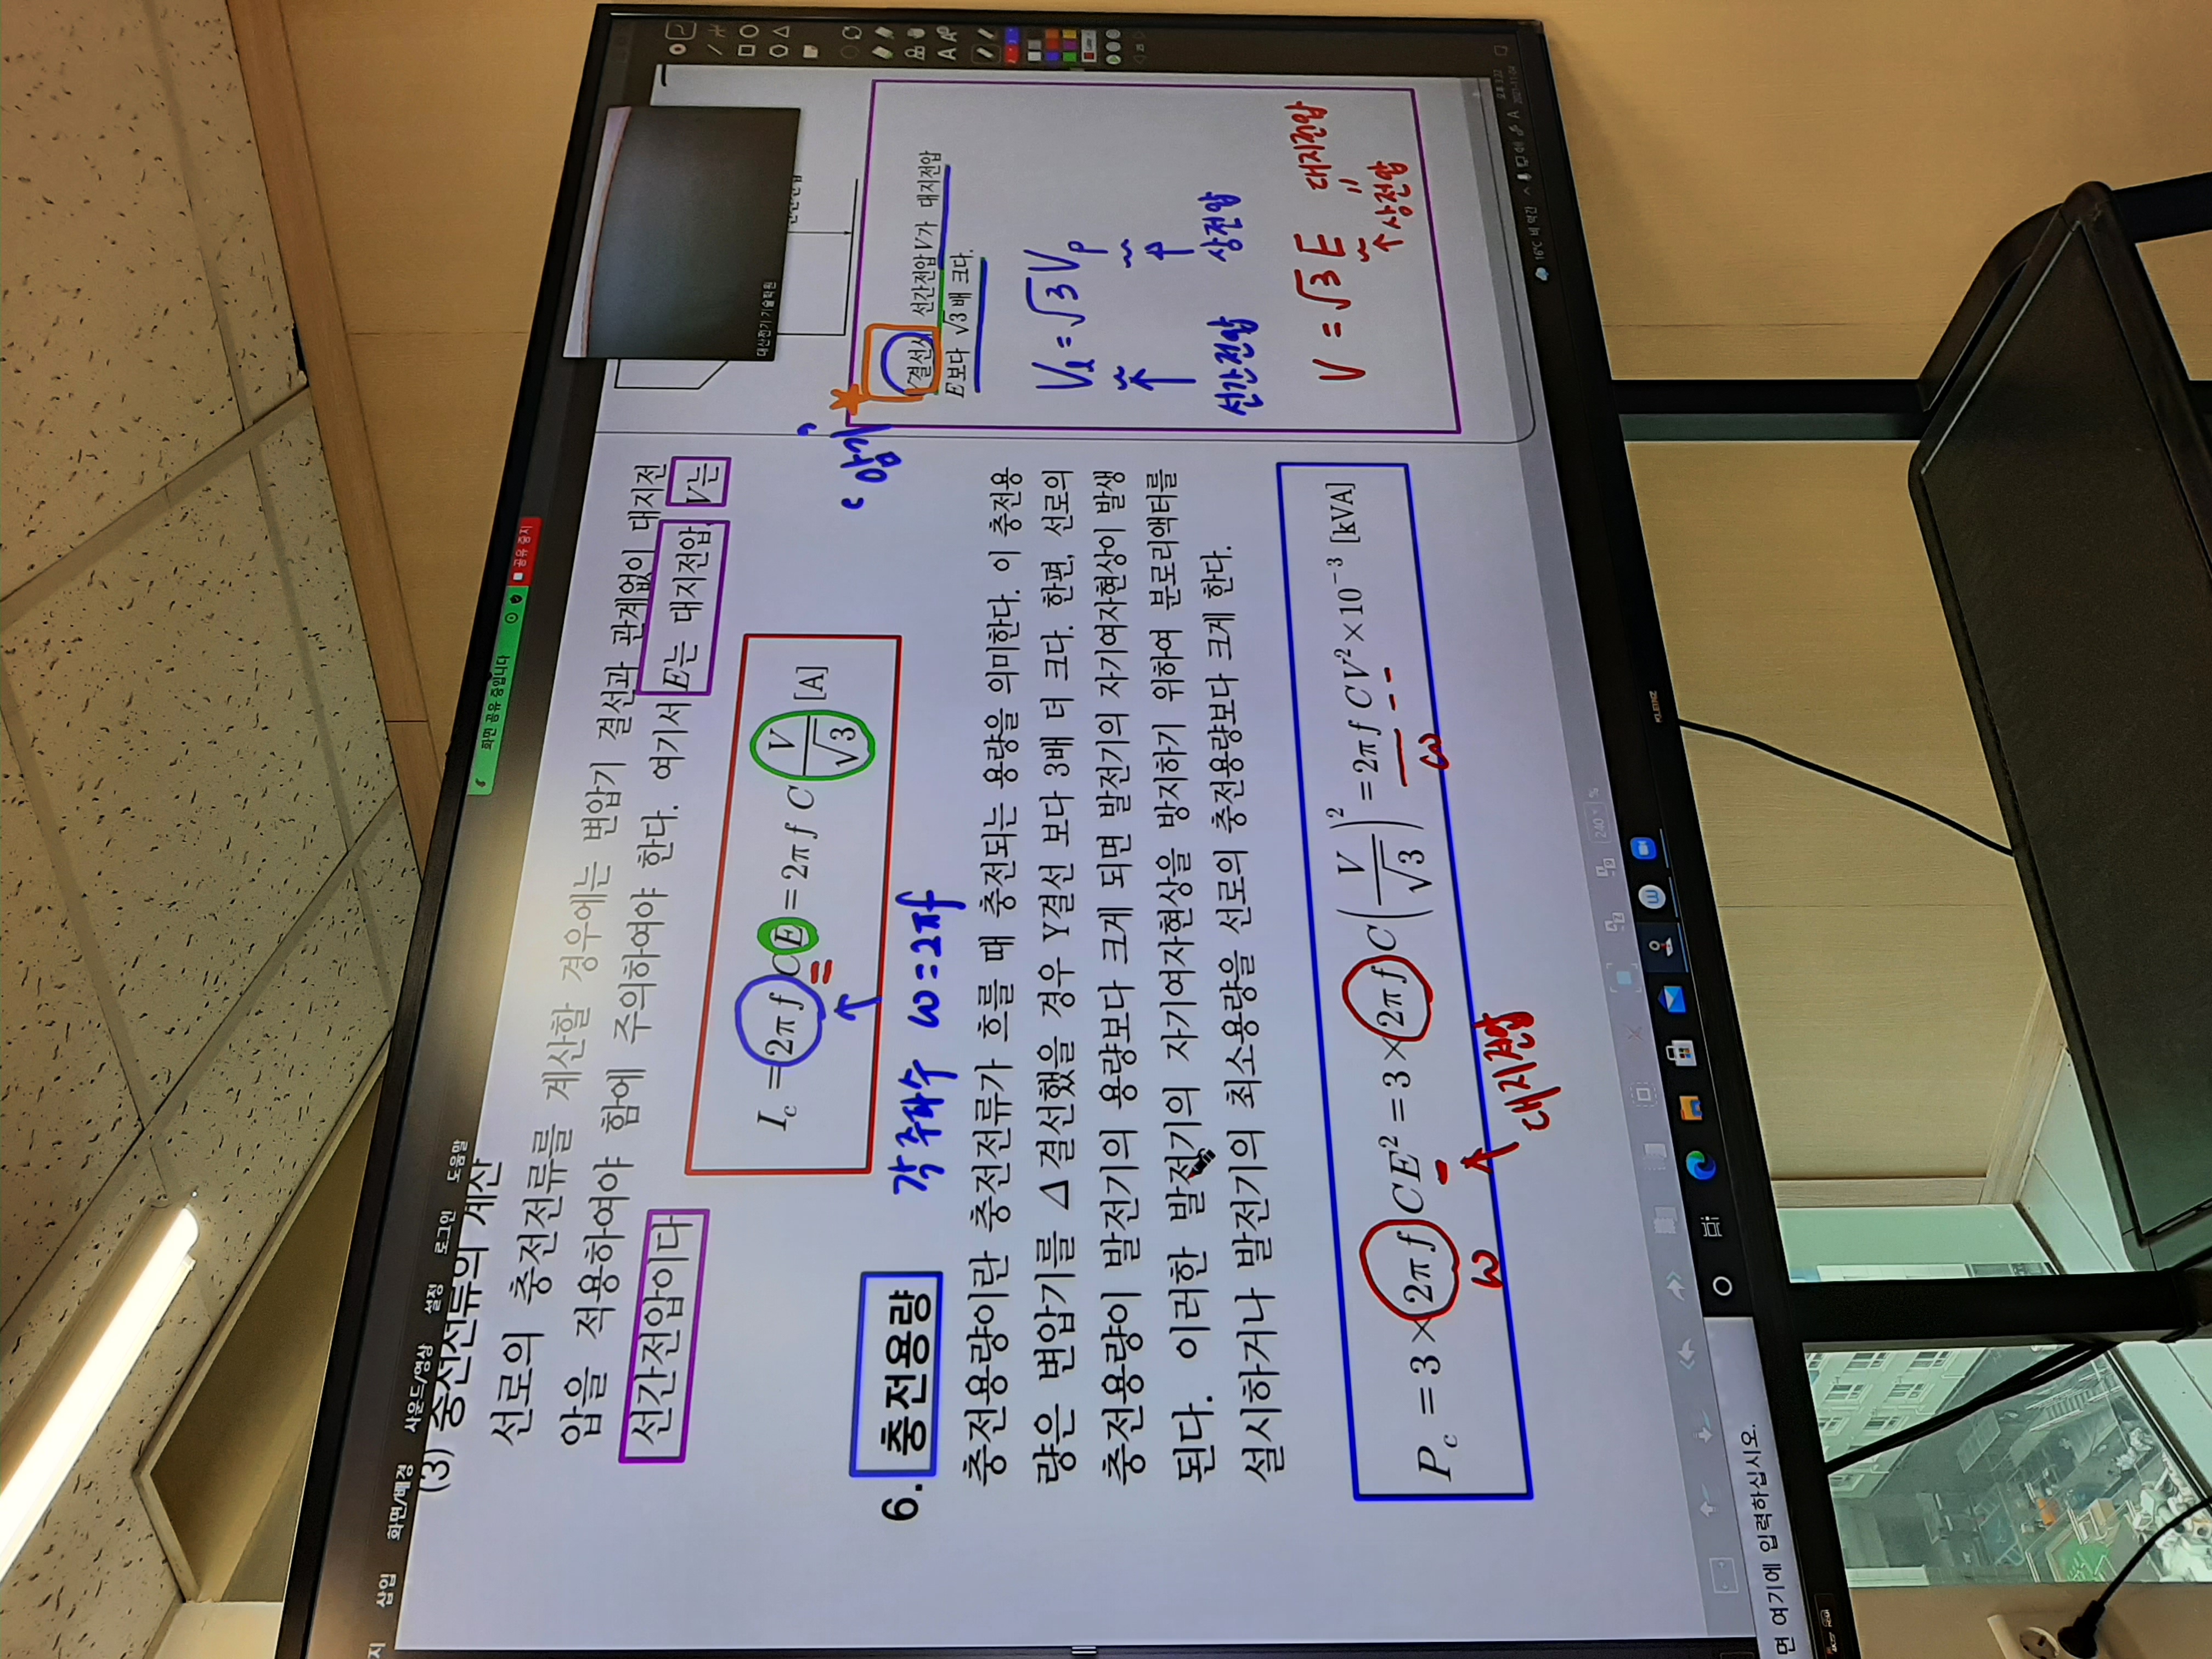 삽입
화면/배경
사운드/영상
설정
로그인
도움말
화면 공유 중입니다
공유 중지
(3) 충전전류의 계산
선로의 충전전류를 계산할 경우에는 변압기 결선과 관계없이 대지전
압을 적용하여야 함에 주의하여야 한다. 여기서 E는 대지전압 V는
선간전압이다
I_c = 2π f C E = 2π f C V/√3 [A]
각주파수 ω=2πf
6. 충전용량
충전용량이란 충전전류가 흐를 때 충전되는 용량을 의미한다. 이 충전용
량은 변압기를 Δ 결선했을 경우 Y결선 보다 3배 더 크다. 한편, 선로의
충전용량이 발전기의 용량보다 크게 되면 발전기의 자기여자현상이 발생
된다. 이러한 발전기의 자기여자현상을 방지하기 위하여 분로리액터를
설시하거나 발전기의 최소용량을 선로의 충전용량보다 크게 한다.
P_c = 3 × 2π f CE² = 3 × 2π f C (V/√3)² = 2π f CV² × 10⁻³ [kVA]
ω
대지전압
ω
대산전기 기술학원
"암기"
Y결선시 선간전압 V가 대지전압
E보다 √3배 크다.
V_l = √3 V_p
선간전압
상전압
V = √3 E
대지전압
〃
상전압
240 %
면 여기에 입력하십시오.
16°C 비 약간
A
오후 3:22
2021-11-04